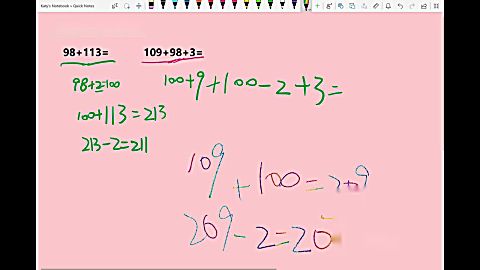 Katy's Notebook > Quick Notes
98+113= 109+98+3=
98+2=100 100+9+100-2+3=
100+113=213
213-2=211
109+100=209
209-2=20